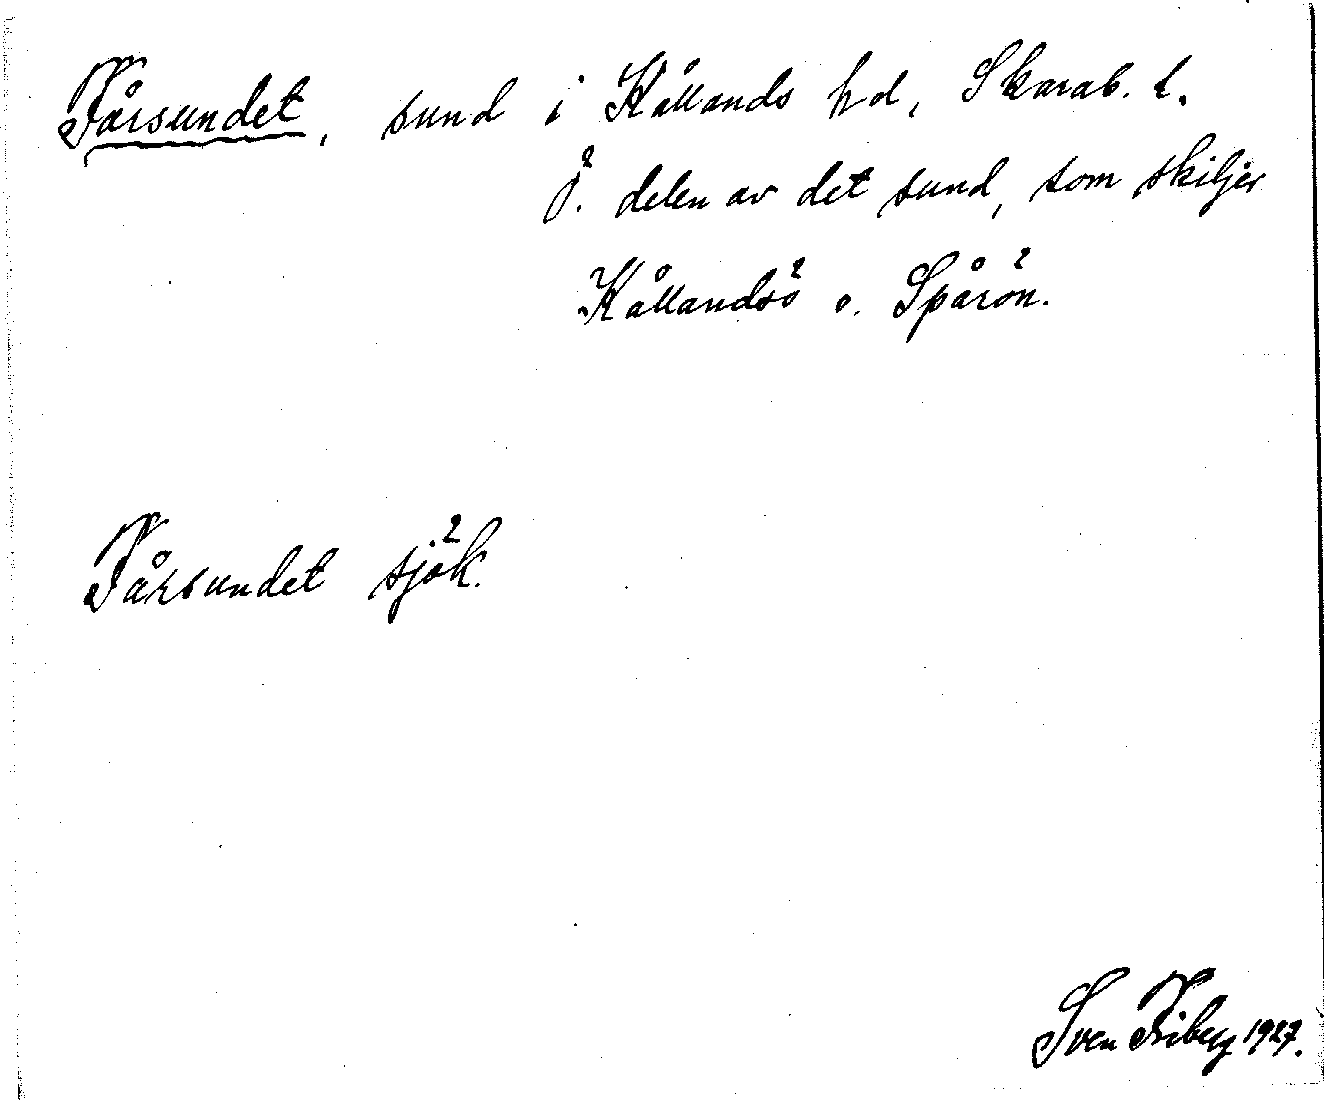 Fårsundet, sund i Kållands hd, Skarab. l.
Ö. delen av det sund, som skiljer
Kållandsö o. Spårön.
Fårsundet sjök.
Sven Friberg 1927.